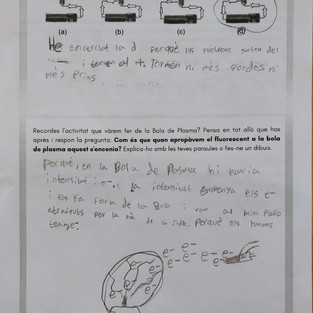 (a) (b) (c) (d)
He encerclat la d perquè els electrons surten del
i tornen al +. Tornen ni més grossos ni
més prims
Recordes l'activitat que vàrem fer de la Bola de Plasma? Pensa en tat allò que has
après i respon la pregunta: Com és que quan apropàvem el fluorescent a la bola
de plasma aquest s'encenia? Explica-ho amb les teves paraules o fes-ne un dibuix.
Perquè, en la Bola de Plasma hi havia
intensitat i e-. i la intensitat empenya els e-
i els fa de la Bola i van al
atraients per la mà de la Perquè els humans
tenim e-.
e- e- e- e- e- e- e-
e- e- e- e- e-